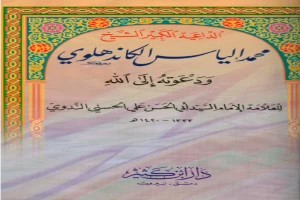 الداعية الكبير الشيخ
محمد الياس الكاندهلوي
ودعوته إلى الله
للعلامة الإمام السيد أبي الحسن علي الحسني الندوي
١٣٣٣ - ١٤٢٠ هـ
دار ابن كثير
دمشق - بيروت